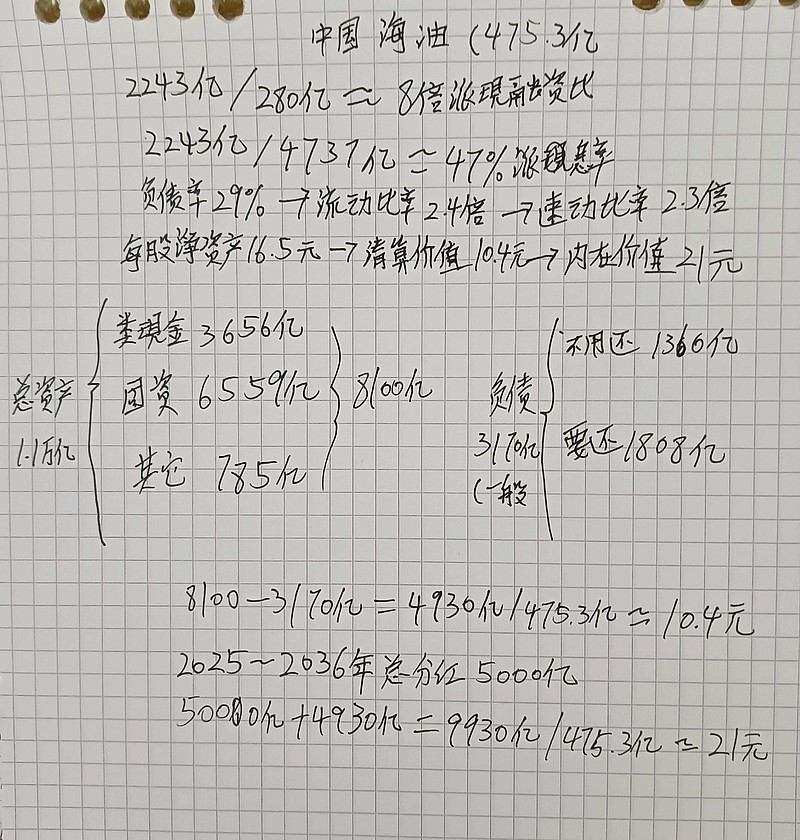 中国海油 (475.3亿
2243亿/280亿≈8倍派現融资比
2243亿/4737亿=47%派現息率
负债率29%→流动比率2.4倍→速动比率2.3倍
每股净资产16.5元→清算价值10.4元→内在价值21元
总资产
1.1万亿
类現金 3656亿
固资 6559亿
其它 785亿
8100亿
负债
3170亿
(一般
不用还 1360亿
要还1808亿
8100-3170亿=4930亿/475.3亿≈10.4元
2025~2036年总分红 5000亿
5000亿+4930亿=9930亿/475.3亿≈21元